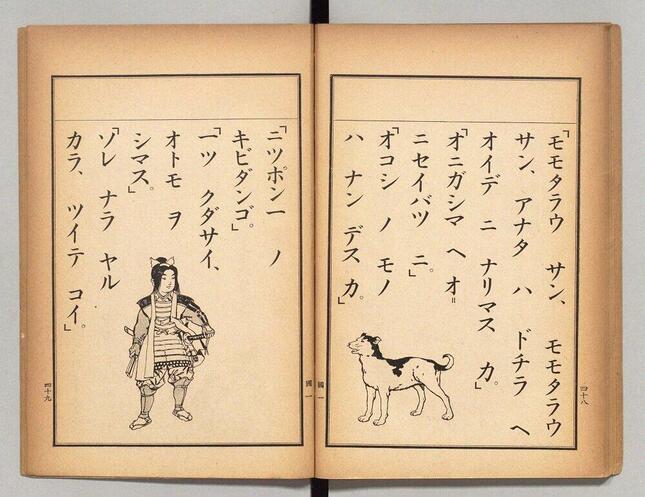 「モモタラウ サン、 モモタラウ
サン、 アナタ ハ ドチラ ヘ
オイデ ニ ナリマス カ。」
「オニガシマ ヘ オ＝
ニセイバツ ニ。」
「オコシ ノ モノ
ハ ナンデス カ。」
四十八
國一
「ニッポン一 ノ
キビダンゴ。」
「一ツ クダサイ、
オトモ ヲ
シマス。」
「ソレ ナラ ヤル
カラ、 ツイテ コイ。」
國一
四十九